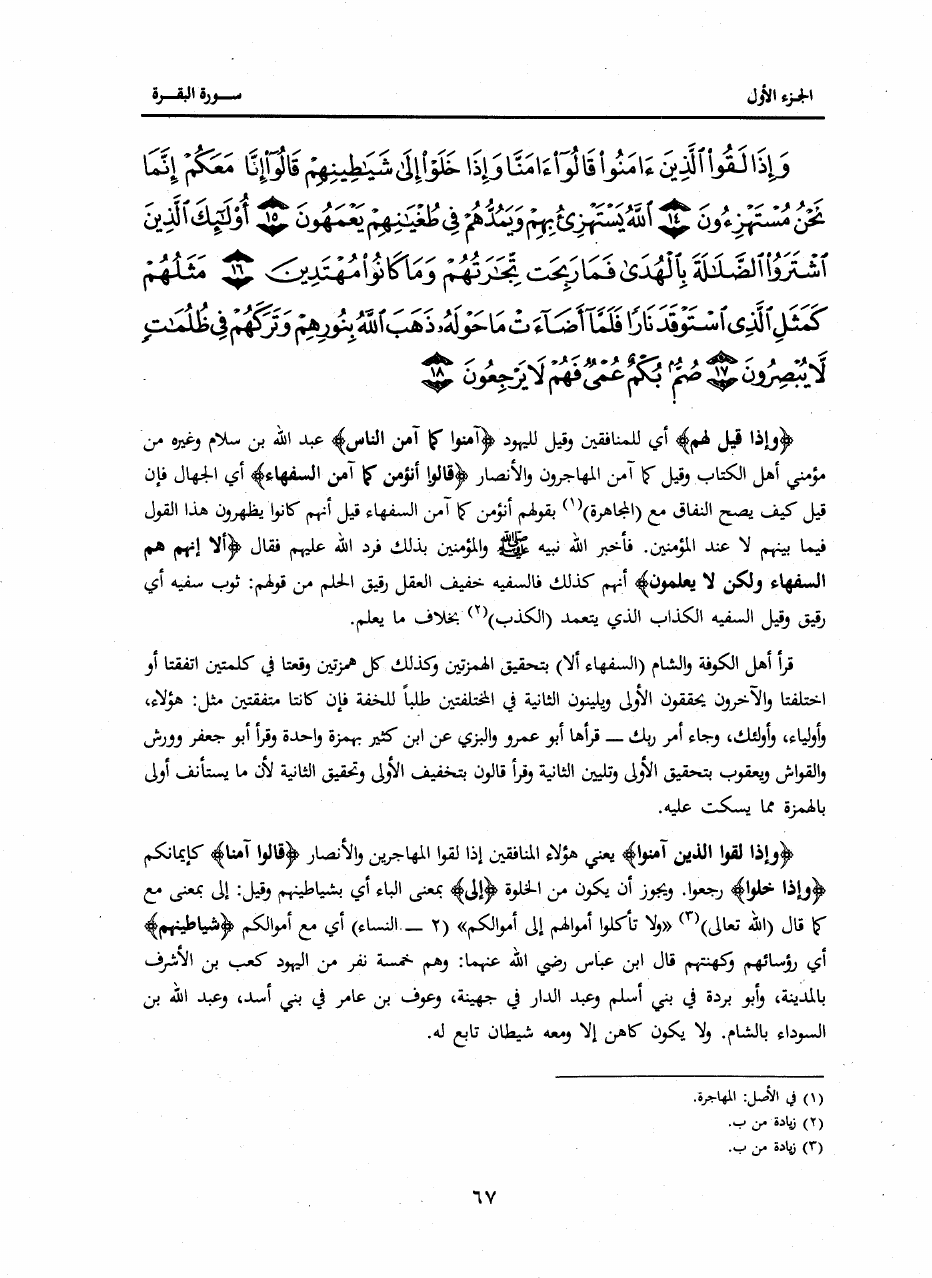 الجزء الأول
ســورة البقــرة
وَإِذَا لَقُوا۟ ٱلَّذِينَ ءَامَنُوا۟ قَالُوٓا۟ ءَامَنَّا وَإِذَا خَلَوْا۟ إِلَىٰ شَيَٰطِينِهِمْ قَالُوٓا۟ إِنَّا مَعَكُمْ إِنَّمَا
نَحْنُ مُسْتَهْزِءُونَ ﴿١٤﴾ ٱللَّهُ يَسْتَهْزِئُ بِهِمْ وَيَمُدُّهُمْ فِى طُغْيَٰنِهِمْ يَعْمَهُونَ ﴿١٥﴾ أُو۟لَٰٓئِكَ ٱلَّذِينَ
ٱشْتَرَوُا۟ ٱلضَّلَٰلَةَ بِٱلْهُدَىٰ فَمَا رَبِحَت تِّجَٰرَتُهُمْ وَمَا كَانُوا۟ مُهْتَدِينَ ﴿١٦﴾ مَثَلُهُمْ
كَمَثَلِ ٱلَّذِى ٱسْتَوْقَدَ نَارًا فَلَمَّآ أَضَآءَتْ مَا حَوْلَهُۥ ذَهَبَ ٱللَّهُ بِنُورِهِمْ وَتَرَكَهُمْ فِى ظُلُمَٰتٍ
لَّا يُبْصِرُونَ ﴿١٧﴾ صُمٌّۢ بُكْمٌ عُمْىٌ فَهُمْ لَا يَرْجِعُونَ ﴿١٨﴾
﴿وإذا قيل لهم﴾ أي للمنافقين وقيل لليهود ﴿آمنوا كما آمن الناس﴾ عبد الله بن سلام وغيره من
مؤمني أهل الكتاب وقيل كما آمن المهاجرون والأنصار ﴿قالوا أنؤمن كما آمن السفهاء﴾ أي الجهال فإن
قيل كيف يصح النفاق مع (المجاهرة)(١) بقولهم أنؤمن كما آمن السفهاء قيل أنهم كانوا يظهرون هذا القول
فيما بينهم لا عند المؤمنين. فأخبر الله نبيه ﷺ والمؤمنين بذلك فرد الله عليهم فقال ﴿ألا إنهم هم
السفهاء ولكن لا يعلمون﴾ أنهم كذلك فالسفيه خفيف العقل رقيق الحلم من قولهم: ثوب سفيه أي
رقيق وقيل السفيه الكذاب الذي يتعمد (الكذب)(٢) بخلاف ما يعلم.
قرأ أهل الكوفة والشام (السفهاء ألا) بتحقيق الهمزتين وكذلك كل همزتين وقعتا في كلمتين اتفقتا أو
اختلفتا والآخرون يحققون الأولى ويلينون الثانية في المختلفتين طلباً للخفة فإن كانتا متفقتين مثل: هؤلاء،
وأولياء، وأولئك، وجاء أمر ربك ــ قرأها أبو عمرو والبزي عن ابن كثير بهمزة واحدة وقرأ أبو جعفر وورش
والقواش ويعقوب بتحقيق الأولى وتليين الثانية وقرأ قالون بتخفيف الأولى وتحقيق الثانية لأن ما يستأنف أولى
بالهمزة مما يسكت عليه.
﴿وإذا لقوا الذين آمنوا﴾ يعني هؤلاء المنافقين إذا لقوا المهاجرين والأنصار ﴿قالوا آمنا﴾ كإيمانكم
﴿وإذا خلوا﴾ رجعوا. ويجوز أن يكون من الخلوة ﴿إلى﴾ بمعنى الباء أي بشياطينهم وقيل: إلى بمعنى مع
كما قال (الله تعالى)(٣) «ولا تأكلوا أموالهم إلى أموالكم» (٢ ــ النساء) أي مع أموالكم ﴿شياطينهم﴾
أي رؤسائهم وكهنتهم قال ابن عباس رضي الله عنهما: وهم خمسة نفر من اليهود كعب بن الأشرف
بالمدينة، وأبو بردة في بني أسلم وعبد الدار في جهينة، وعوف بن عامر في بني أسد، وعبد الله بن
السوداء بالشام. ولا يكون كاهن إلا ومعه شيطان تابع له.
(١) في الأصل: المهاجرة.
(٢) زيادة من ب.
(٣) زيادة من ب.
٦٧